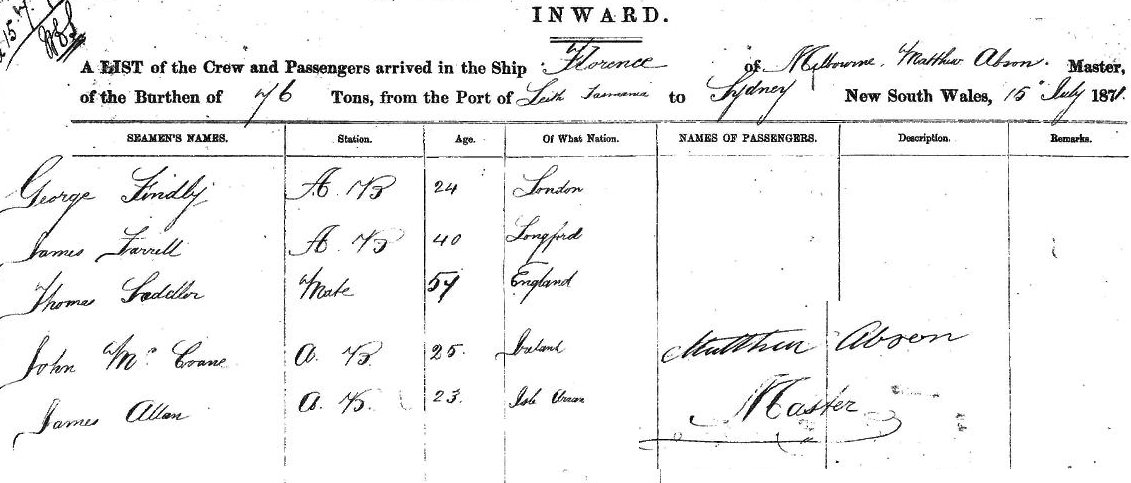 INWARD.
A LIST of the Crew and Passengers arrived in the Ship Florence of Melbourne, Matthew Abson. Master,
of the Burthen of 76 Tons, from the Port of Leith Tasmania to Sydney New South Wales, 15 July 1871.
SEAMEN'S NAMES. Station. Age. Of What Nation. NAMES OF PASSENGERS. Description. Remarks.
George Findly A. B 24 London
James Farrell A. B 40 Longford
Thomas Saddler Mate 57 England
John Mc Crane A. B 25. Ireland Matthew Abson
James Allan A. B. 23. Isle Arran Master